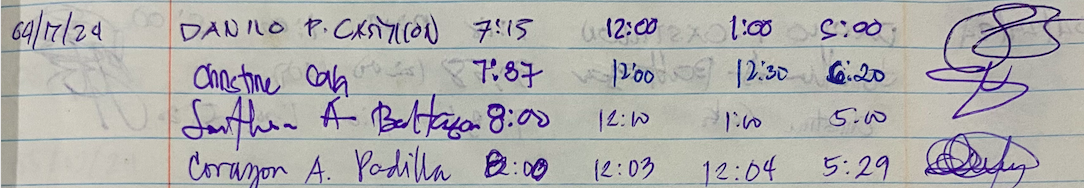 04/17/24 DANILO P. CASTILLON 7:15 12:00 1:00 5:00
Christine 7:37 12:00 12:30 6:20
A Baltazar 8:00 12:10 1:00 5:10
Corazon A. Padilla 8:00 12:03 12:04 5:29